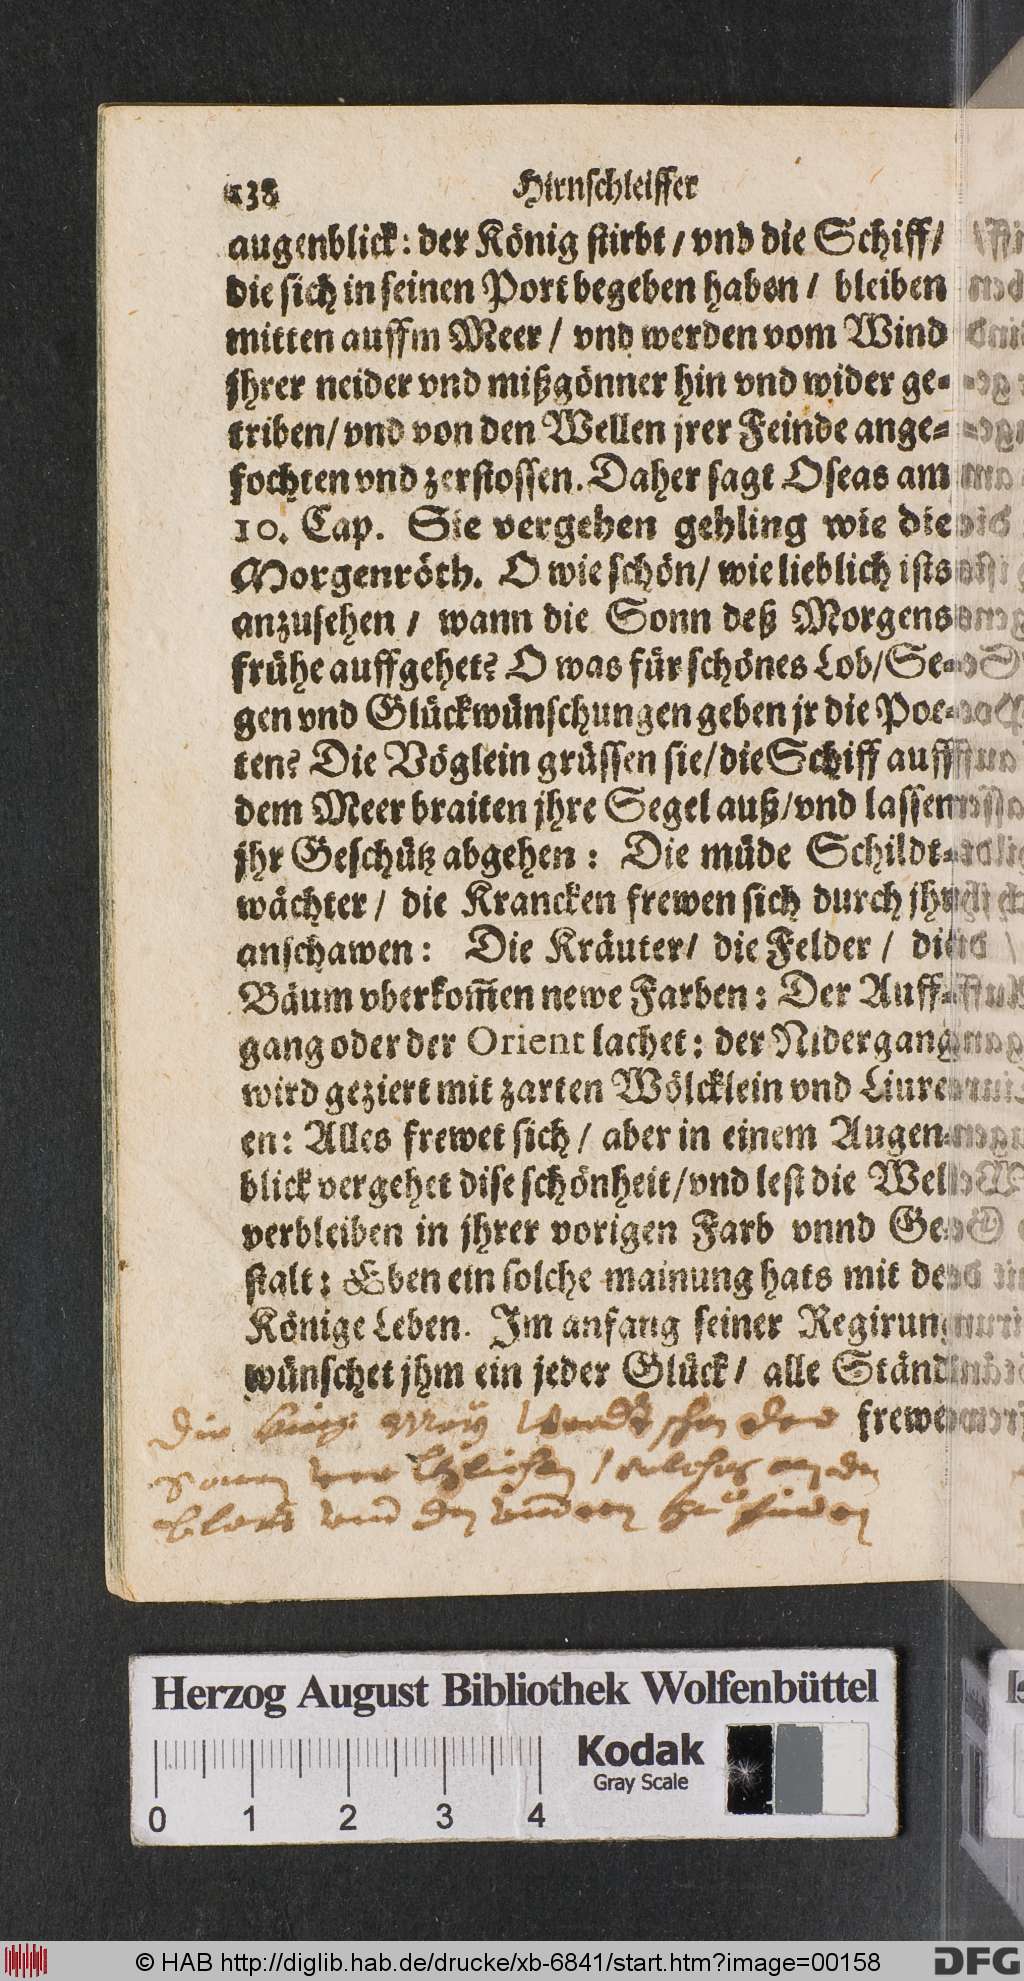 138 Hirnschleiffer
augenblick: der König stirbt / vnd die Schiff /
die sich in seinen Port begeben haben / bleiben
mitten auffm Meer / vnd werden vom Wind
jhrer neider vnd mißgönner hin vnd wider ge-
triben / vnd von den Wellen jrer Feinde ange-
fochten vnd zerstossen. Daher sagt Oseas am
10. Cap. Sie vergehen gehling wie die
Morgenröth. O wie schön / wie lieblich ists
anzusehen / wann die Sonn deß Morgens
frühe auffgehet? O was für schönes Lob / Se-
gen vnd Glückwünschungen geben jr die Poe-
ten? Die Vöglein grüssen sie / die Schiff auff
dem Meer braiten jhre Segel auß / vnd lassen
jhr Geschütz abgehen : Die müde Schildt-
wächter / die Krancken frewen sich durch jhr
anschawen : Die Kräuter / die Felder / die
Bäum vberkom̃en newe Farben : Der Auff-
gang oder der Orient lachet : der Nidergang
wird geziert mit zarten Wölcklein vnd Liure-
en : Alles frewet sich / aber in einem Augen-
blick vergehet dise schönheit / vnd lest die Welt
verbleiben in jhrer vorigen Farb vnnd Ge-
stalt : Eben ein solche mainung hats mit der
Könige Leben. Im anfang seiner Regirung
wünschet jhm ein jeder Glück / alle Ständ
frewe
Herzog August Bibliothek Wolfenbüttel
Kodak
Gray Scale
0 1 2 3 4
© HAB http://diglib.hab.de/drucke/xb-6841/start.htm?image=00158
DFG